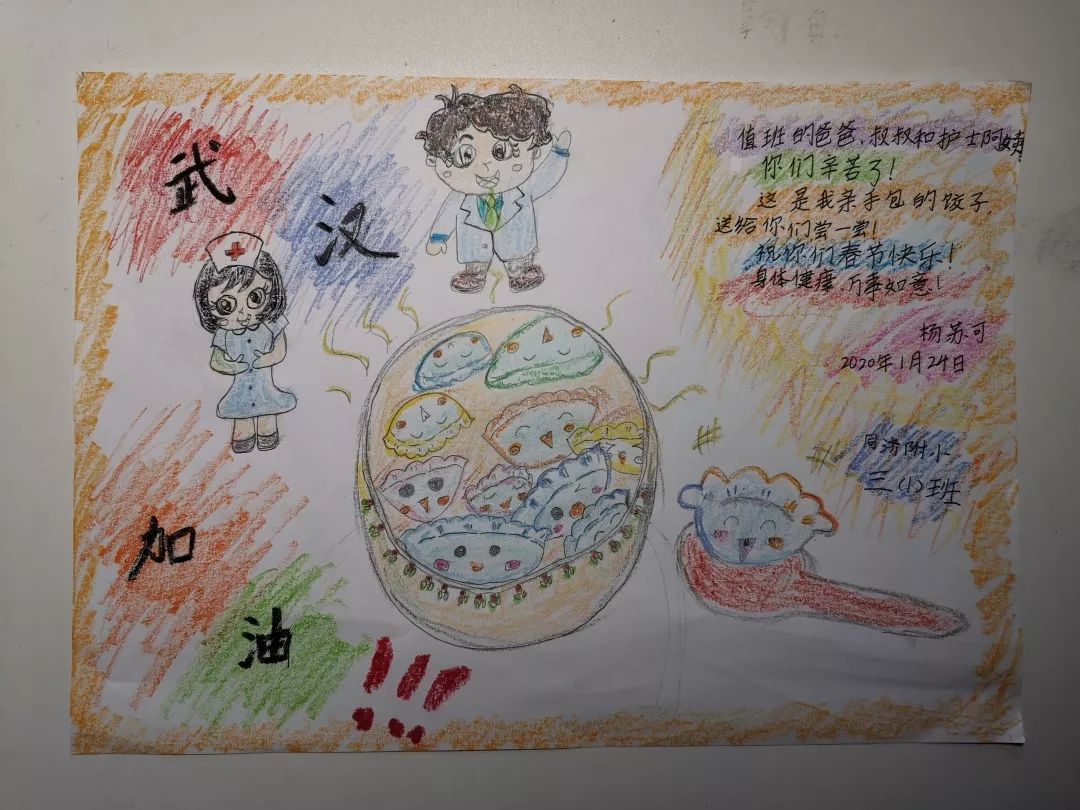 武
汉
加
油
!!!
值班的爸爸、叔叔和护士阿姨
你们辛苦了!
这是我亲手包的饺子,
送给你们尝一尝!
祝你们春节快乐!
身体健康、万事如意!
杨苏可
2020年1月24日
同济附小
三(1)班